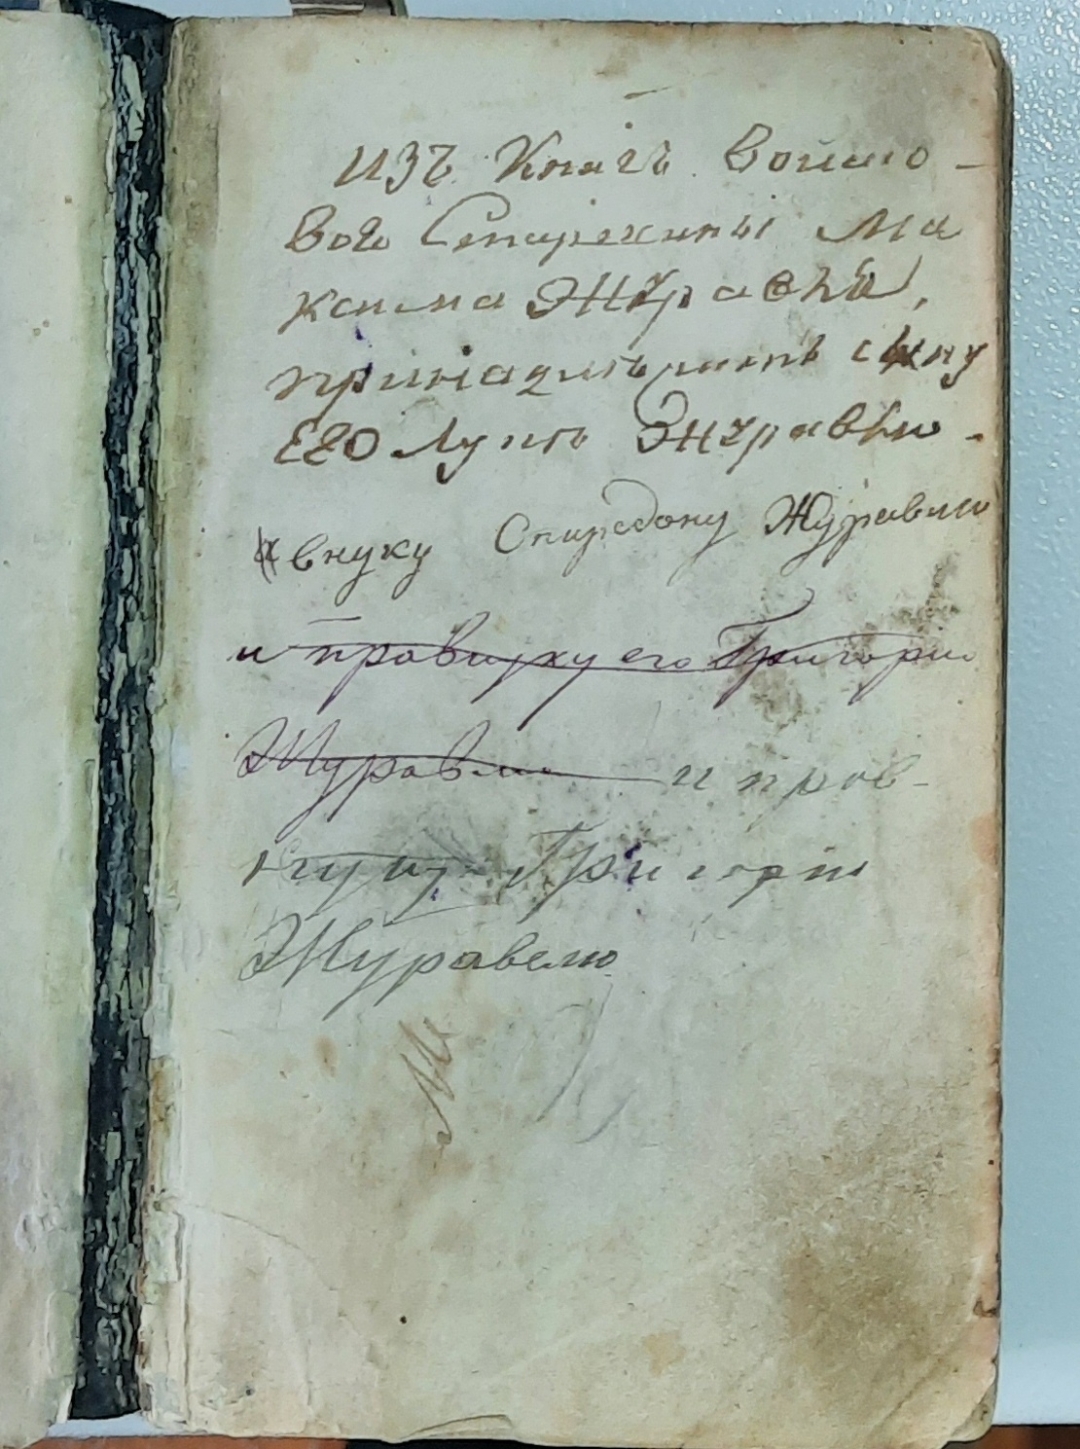 Изъ Книгъ войско-
вого Старшины Ма
ксима Журавля,
принадлежитъ сыну
его Лукѣ Журавлю.
и внуку Спиредону Журавлю
и правнуку его Григорию
Журавлю и прав-
нуку Григорію
Журавелю